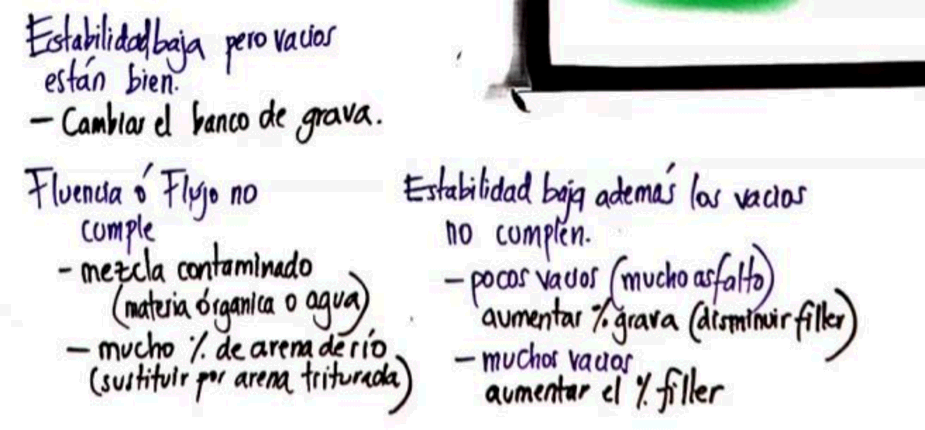 Estabilidad baja pero vacios
están bien.
- Cambiar el banco de grava.
Fluencia ó Flujo no
cumple
- mezcla contaminado
(materia órganica o agua)
- mucho % de arena de río
(sustituir por arena triturada)
Estabilidad baja además los vacios
no cumplen.
- pocos vacios (mucho asfalto)
aumentar % grava (disminuir filler)
- muchos vacios
aumentar el % filler